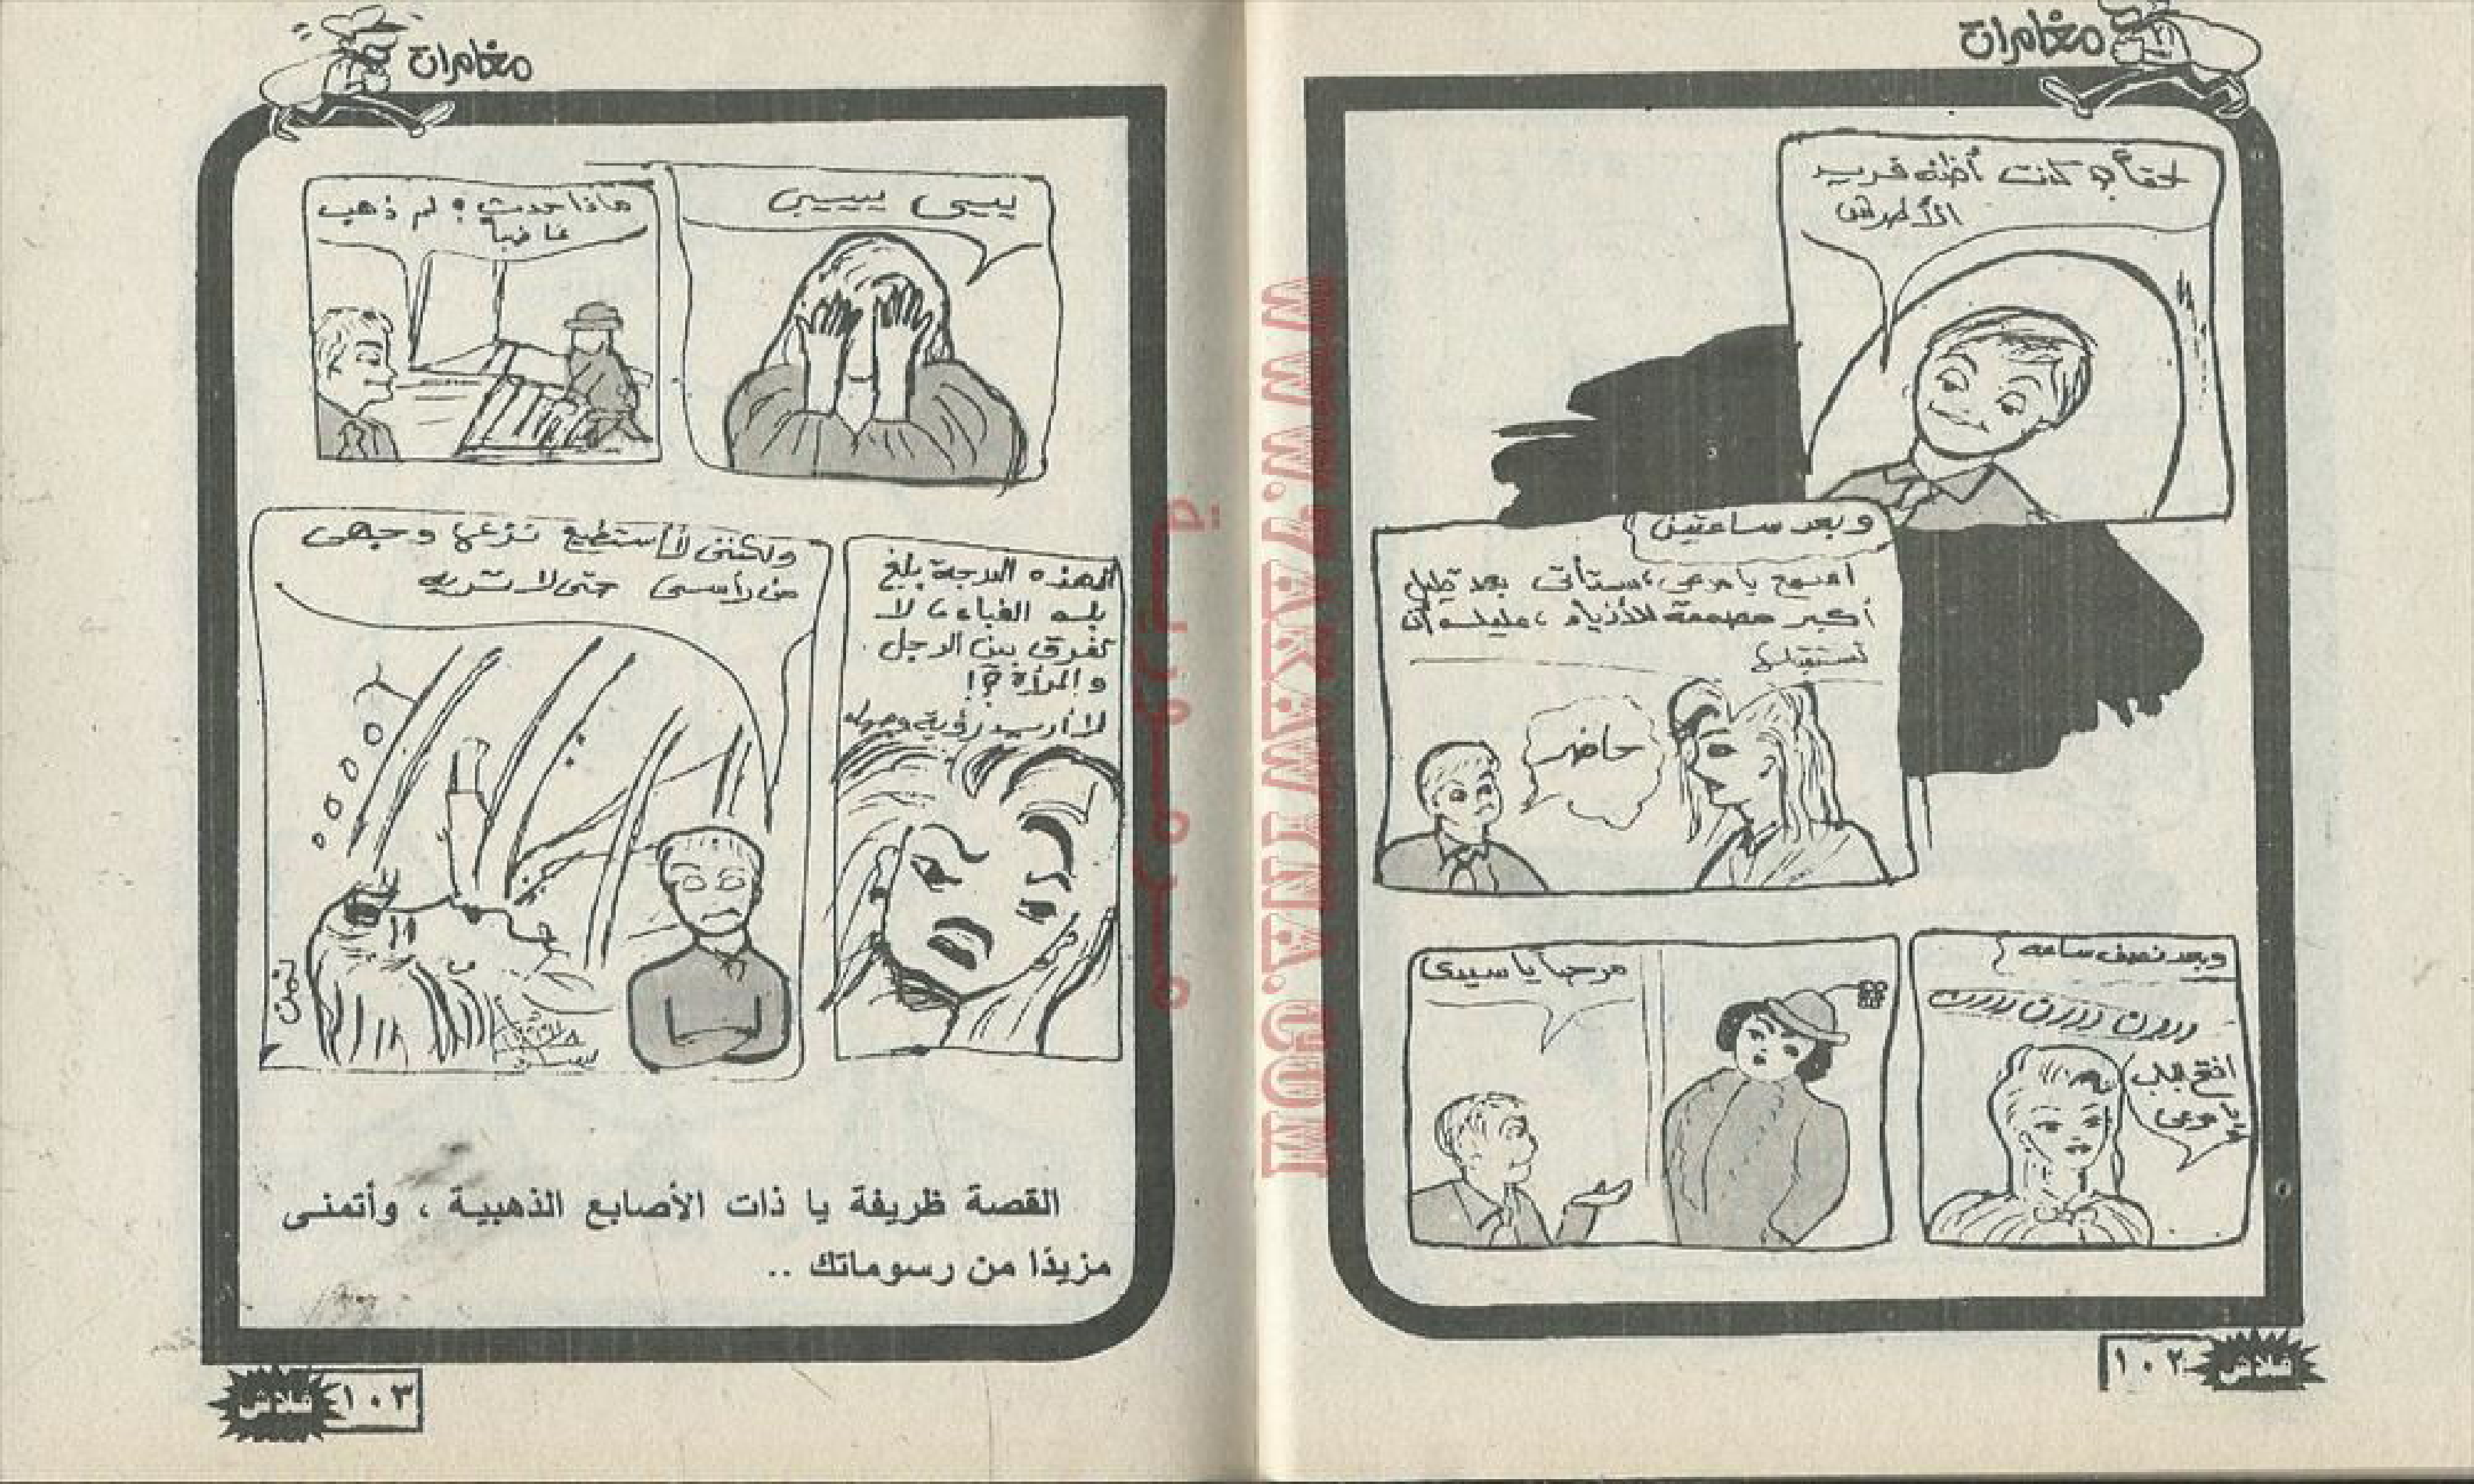 مغامرات
أحقاً؟ كنت أظنه فريد
الأطرش
وبعد ساعتين
اسمع يا مرعى، ستأتى بعد قليل
أكبر مصممة للأزياء، عليك أن
تستقبلها
حاضر
وبعد نصف ساعة
ررررن ررررن ررررن
افتح الباب
يا مرعى
مرحباً يا سيدى
فلاش ١٠٢
مغامرات
ييييى ييييييى
ماذا حدث؟ لم ذهب
غاضباً
ألهذه الدرجة بلغ
بك الغباء، لا
تفرق بين الرجل
والمرأة؟!
لا أريد رؤية وجهك
ولكننى لا أستطيع نزع وجهى
من رأسى حتى لا تريه
تمت
القصة ظريفة يا ذات الأصابع الذهبية ، وأتمنى
مزيدًا من رسوماتك ..
١٠٣ فلاش
WWW.ARABMERMAID.COM